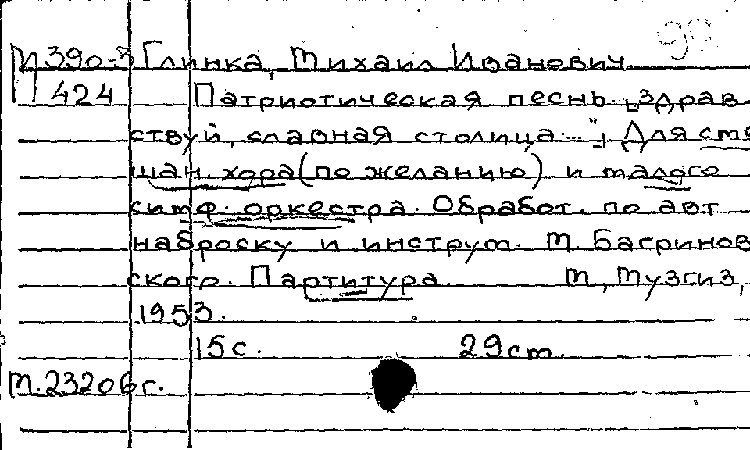 М390-3 Глинка, Михаил Иванович
424 Патриотическая песнь. „Здрав
ствуй, славная столица..." Для сме
шан. хора (по желанию) и малого
симф. оркестра. Обработ. по авт
наброску и инструм. М. Багринов
ского. Партитура М., Музгиз,
1953.
15с. 29см.
М.23206г.